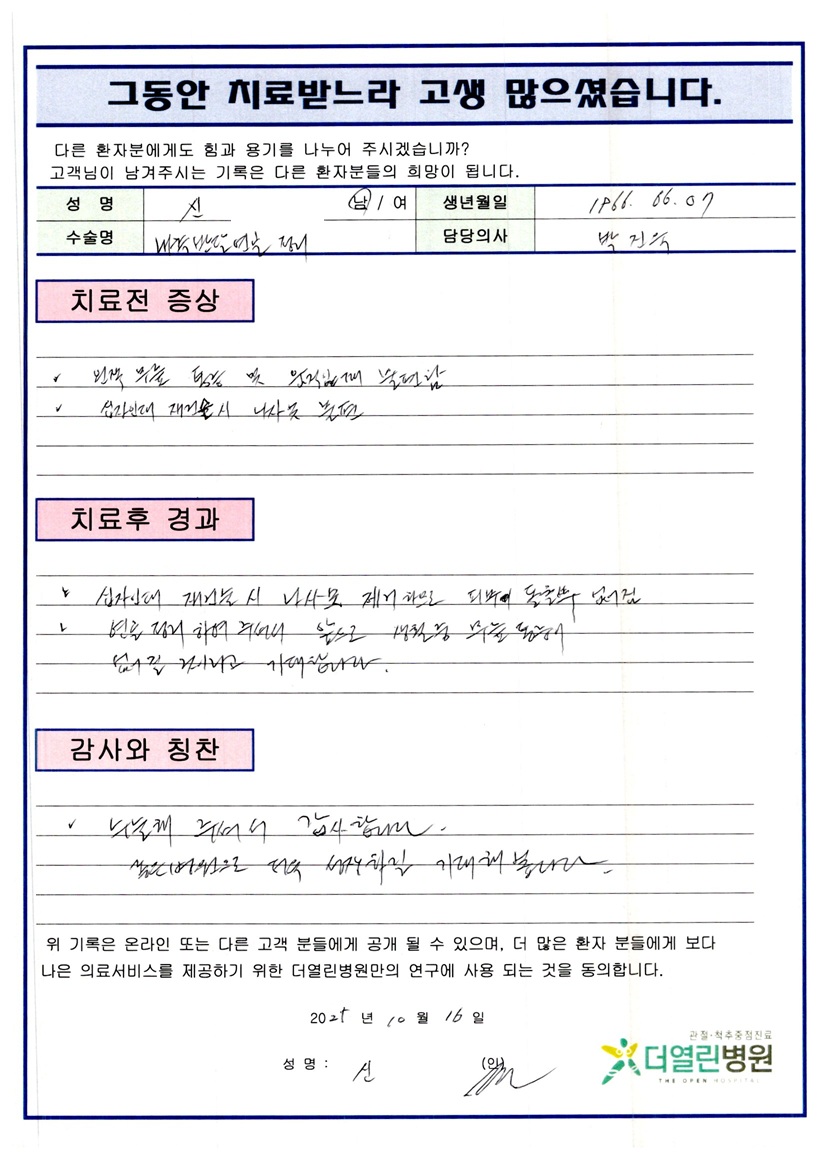 그동안 치료받느라 고생 많으셨습니다.
다른 환자분에게도 힘과 용기를 나누어 주시겠습니까?
고객님이 남겨주시는 기록은 다른 환자분들의 희망이 됩니다.
성 명 신 남 / 여 생년월일 1966. 06. 07
수술명 내측반달연골 정리 담당의사 박진욱
치료전 증상
✓ 왼쪽 무릎 통증 및 움직일때 불편함
✓ 십자인대 재건술시 나사못 불편
치료후 경과
십자인대 재건술시 나사못 제거하므로 피부에 돌출부 없어짐
연골 정리하여 주셔서 앞으로 생활중 무릎 통증이
없어질 것이라고 기대합니다.
감사와 칭찬
✓ 수술해 주셔서 감사합니다.
병원으로 더욱 성장하길 기대해 봅니다.
위 기록은 온라인 또는 다른 고객 분들에게 공개 될 수 있으며, 더 많은 환자 분들에게 보다
나은 의료서비스를 제공하기 위한 더열린병원만의 연구에 사용 되는 것을 동의합니다.
2025 년 10 월 16 일
성 명 : 신 (인)
관절·척추중점진료
더열린병원
THE OPEN HOSPITAL